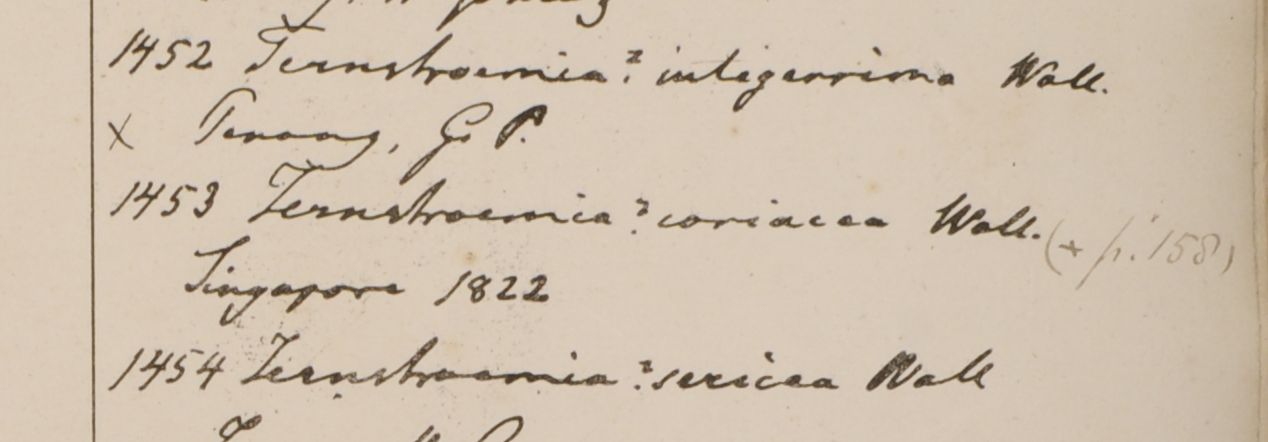 1452 Ternstroemia? integerrima Wall.
x Penang, G. P.
1453 Ternstroemia? coriacea Wall. (x p. 158)
Singapore 1822
1454 Ternstroemia? sericea Wall